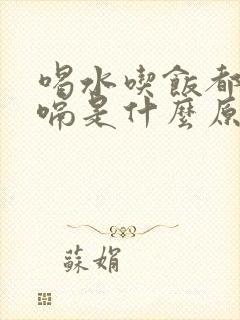 喝水喫飯都
嗝是什麼原
蘇娟